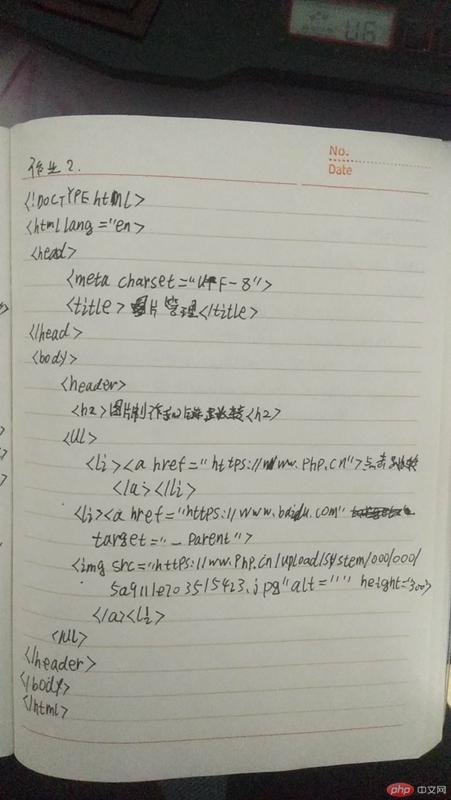 No.
Date
作业2.
<!DOCTYPE html>
<html lang="en>
<head>
<meta charset="UTF-8">
<title>图片管理</title>
</head>
<body>
<header>
<h2>图片制作和跳转<h2>
<ul>
<li><a href="https://www.php.cn">点击跳转
</a></li>
<li><a href="https://www.baidu.com"
target="_parent">
<img src="https://ww.php.cn/upload/system/000/000/
5a9111e703515423.jpg"alt="" height='300'>
</a><li>
</ul>
</header>
</body>
</html>
php 中文网